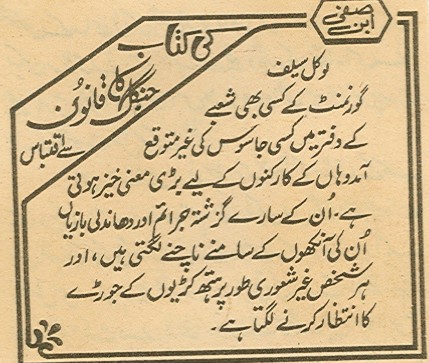 ابن صفی
کی کتاب
جنگل کا قانون
سے اقتباس
لوکل سیلف
گورنمنٹ کے کسی بھی شعبے
کے دفتر میں کسی جاسوس کی غیر متوقع
آمد وہاں کے کارکنوں کے لیے بڑی معنی خیز ہوتی
ہے۔ اُن کے سارے گزشتہ جرائم اور دھاندلی بازیاں
اُن کی آنکھوں کے سامنے ناچنے لگتی ہیں، اور
ہر شخص غیر شعوری طور پر ہتھکڑیوں کے جوڑے
کا انتظار کرنے لگتا ہے۔